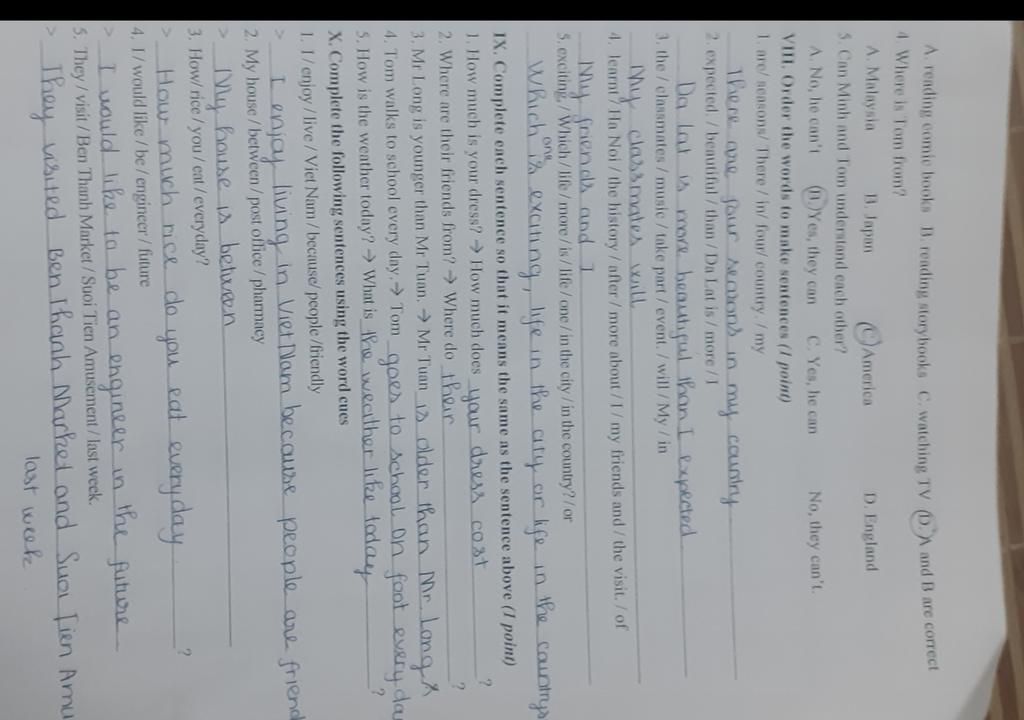 A. reading comic books B. reading storybooks C. watching TV D. A and B are correct
4. Where is Tom from?
A. Malaysia B. Japan C. America D. England
5. Can Minh and Tom understand each other?
A. No, he can't B. Yes, they can C. Yes, he can No, they can't.
VIII. Order the words to make sentences (1 point)
1. are/ seasons/ There / in/ four/ country. / my
There are four seasons in my country
2. expected. / beautiful / than / Da Lat is / more / I
Da lat is more beautiful than I expected
3. the / classmates / music / take part / event. / will / My / in
My classmates will
4. learnt / Ha Noi / the history / after / more about / I / my friends and / the visit. / of
My friends and I
5. exciting / Which / life / more / is / life / one / in the city / in the country? / or
Which one is exciting, life in the city or life in the countrys
IX. Complete each sentence so that it means the same as the sentence above (1 point)
1. How much is your dress? → How much does your dress cost ?
2. Where are their friends from? → Where do their ?
3. Mr Long is younger than Mr Tuan. → Mr Tuan is older than Mr Long
4. Tom walks to school every day. → Tom goes to school on foot every da
5. How is the weather today? → What is the weather like today ?
X. Complete the following sentences using the word cues
1. I / enjoy / live / Viet Nam / because/ people /friendly
> I enjoy living in Viet Nam because people are friend
2. My house / between / post office / pharmacy
> My house is between
3. How/ rice / you / eat / everyday?
> How much rice do you eat everyday ?
4. I / would like / be / engineer / future
> I would like to be an engineer in the future
5. They / visit / Ben Thanh Market / Suoi Tien Amusement / last week.
> They visited Ben Thanh Market and Suoi Tien Amu
last week